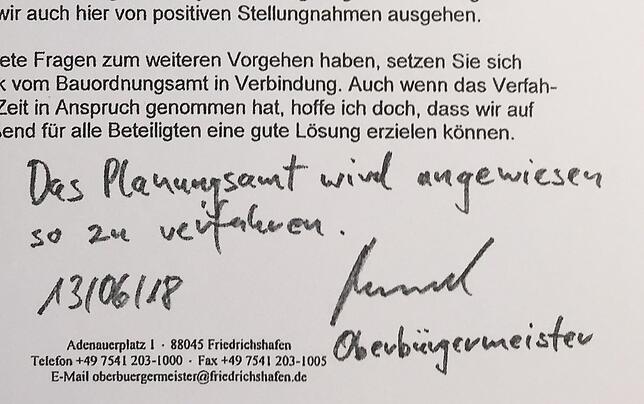 wir auch hier von positiven Stellungnahmen ausgehen.
ete Fragen zum weiteren Vorgehen haben, setzen Sie sich
k vom Bauordnungsamt in Verbindung. Auch wenn das Verfah-
Zeit in Anspruch genommen hat, hoffe ich doch, dass wir auf
end für alle Beteiligten eine gute Lösung erzielen können.
Das Planungsamt wird angewiesen
so zu verfahren.
13/06/18
Oberbürgermeister
Adenauerplatz 1 · 88045 Friedrichshafen
Telefon +49 7541 203-1000 · Fax +49 7541 203-1005
E-Mail oberbuergermeister@friedrichshafen.de